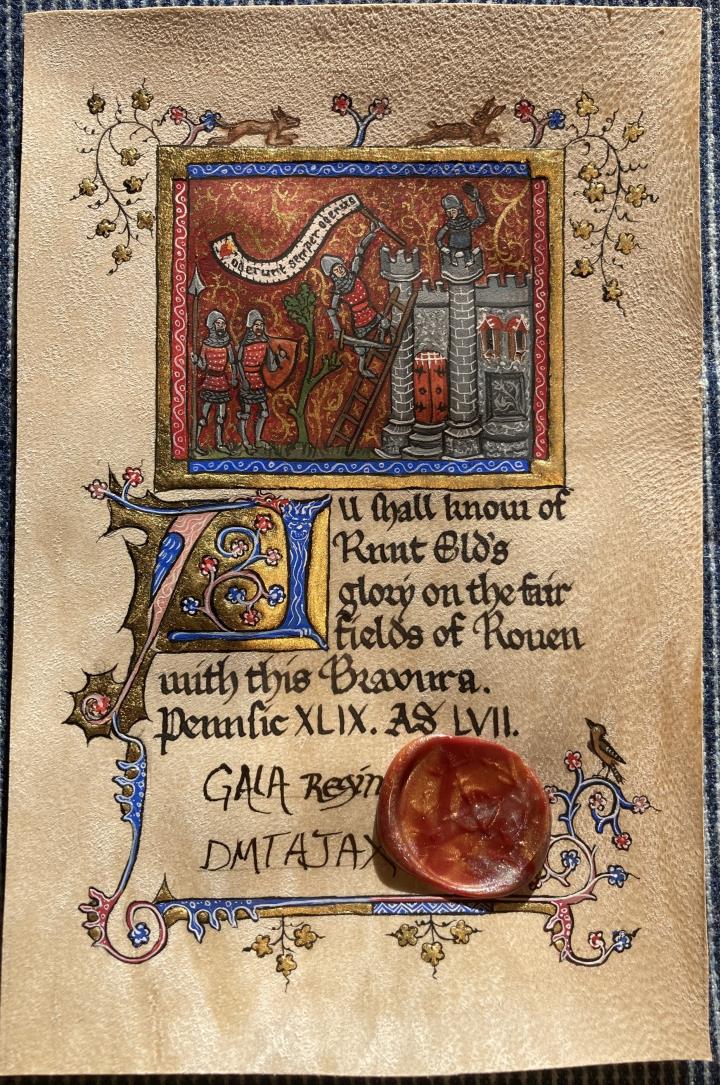 oderunt semper
All shall know of
Runt Eld's
glory on the fair
fields of Rouen
with this Bravura.
Pennsic XLIX. AS LVII.
GALA Regin
DMTAJAX